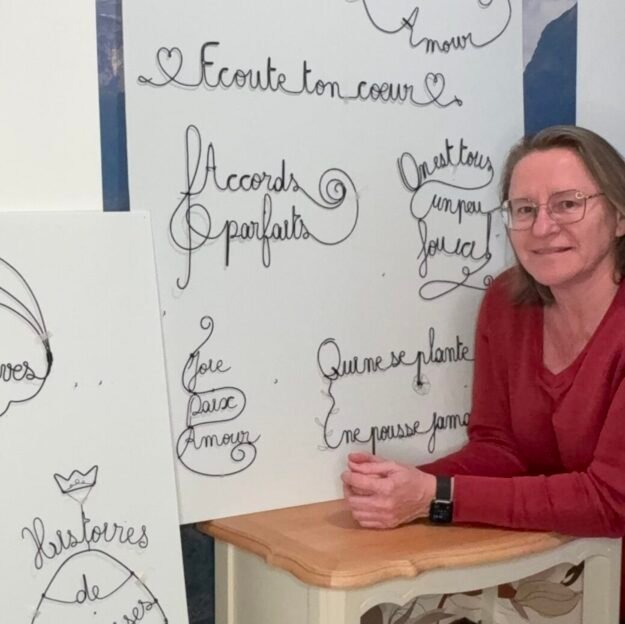 Amour
Ecoute ton coeur
Accords
parfaits
On est tous
un peu
fou ici
Joie
paix
Amour
Qui ne se plante
ne pousse jama
ves
Histoires
de